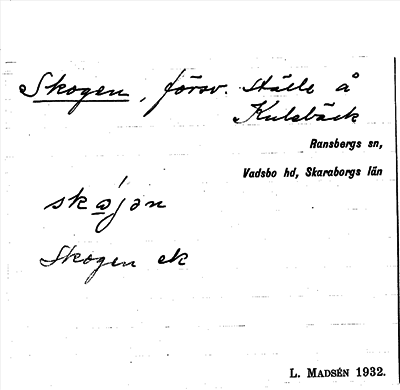 Skogen, försv. ställe å
Kulebäck
Ransbergs sn,
Vadsbo hd, Skaraborgs län
skǫ́jən
Skogen ek
L. MADSÉN 1932.